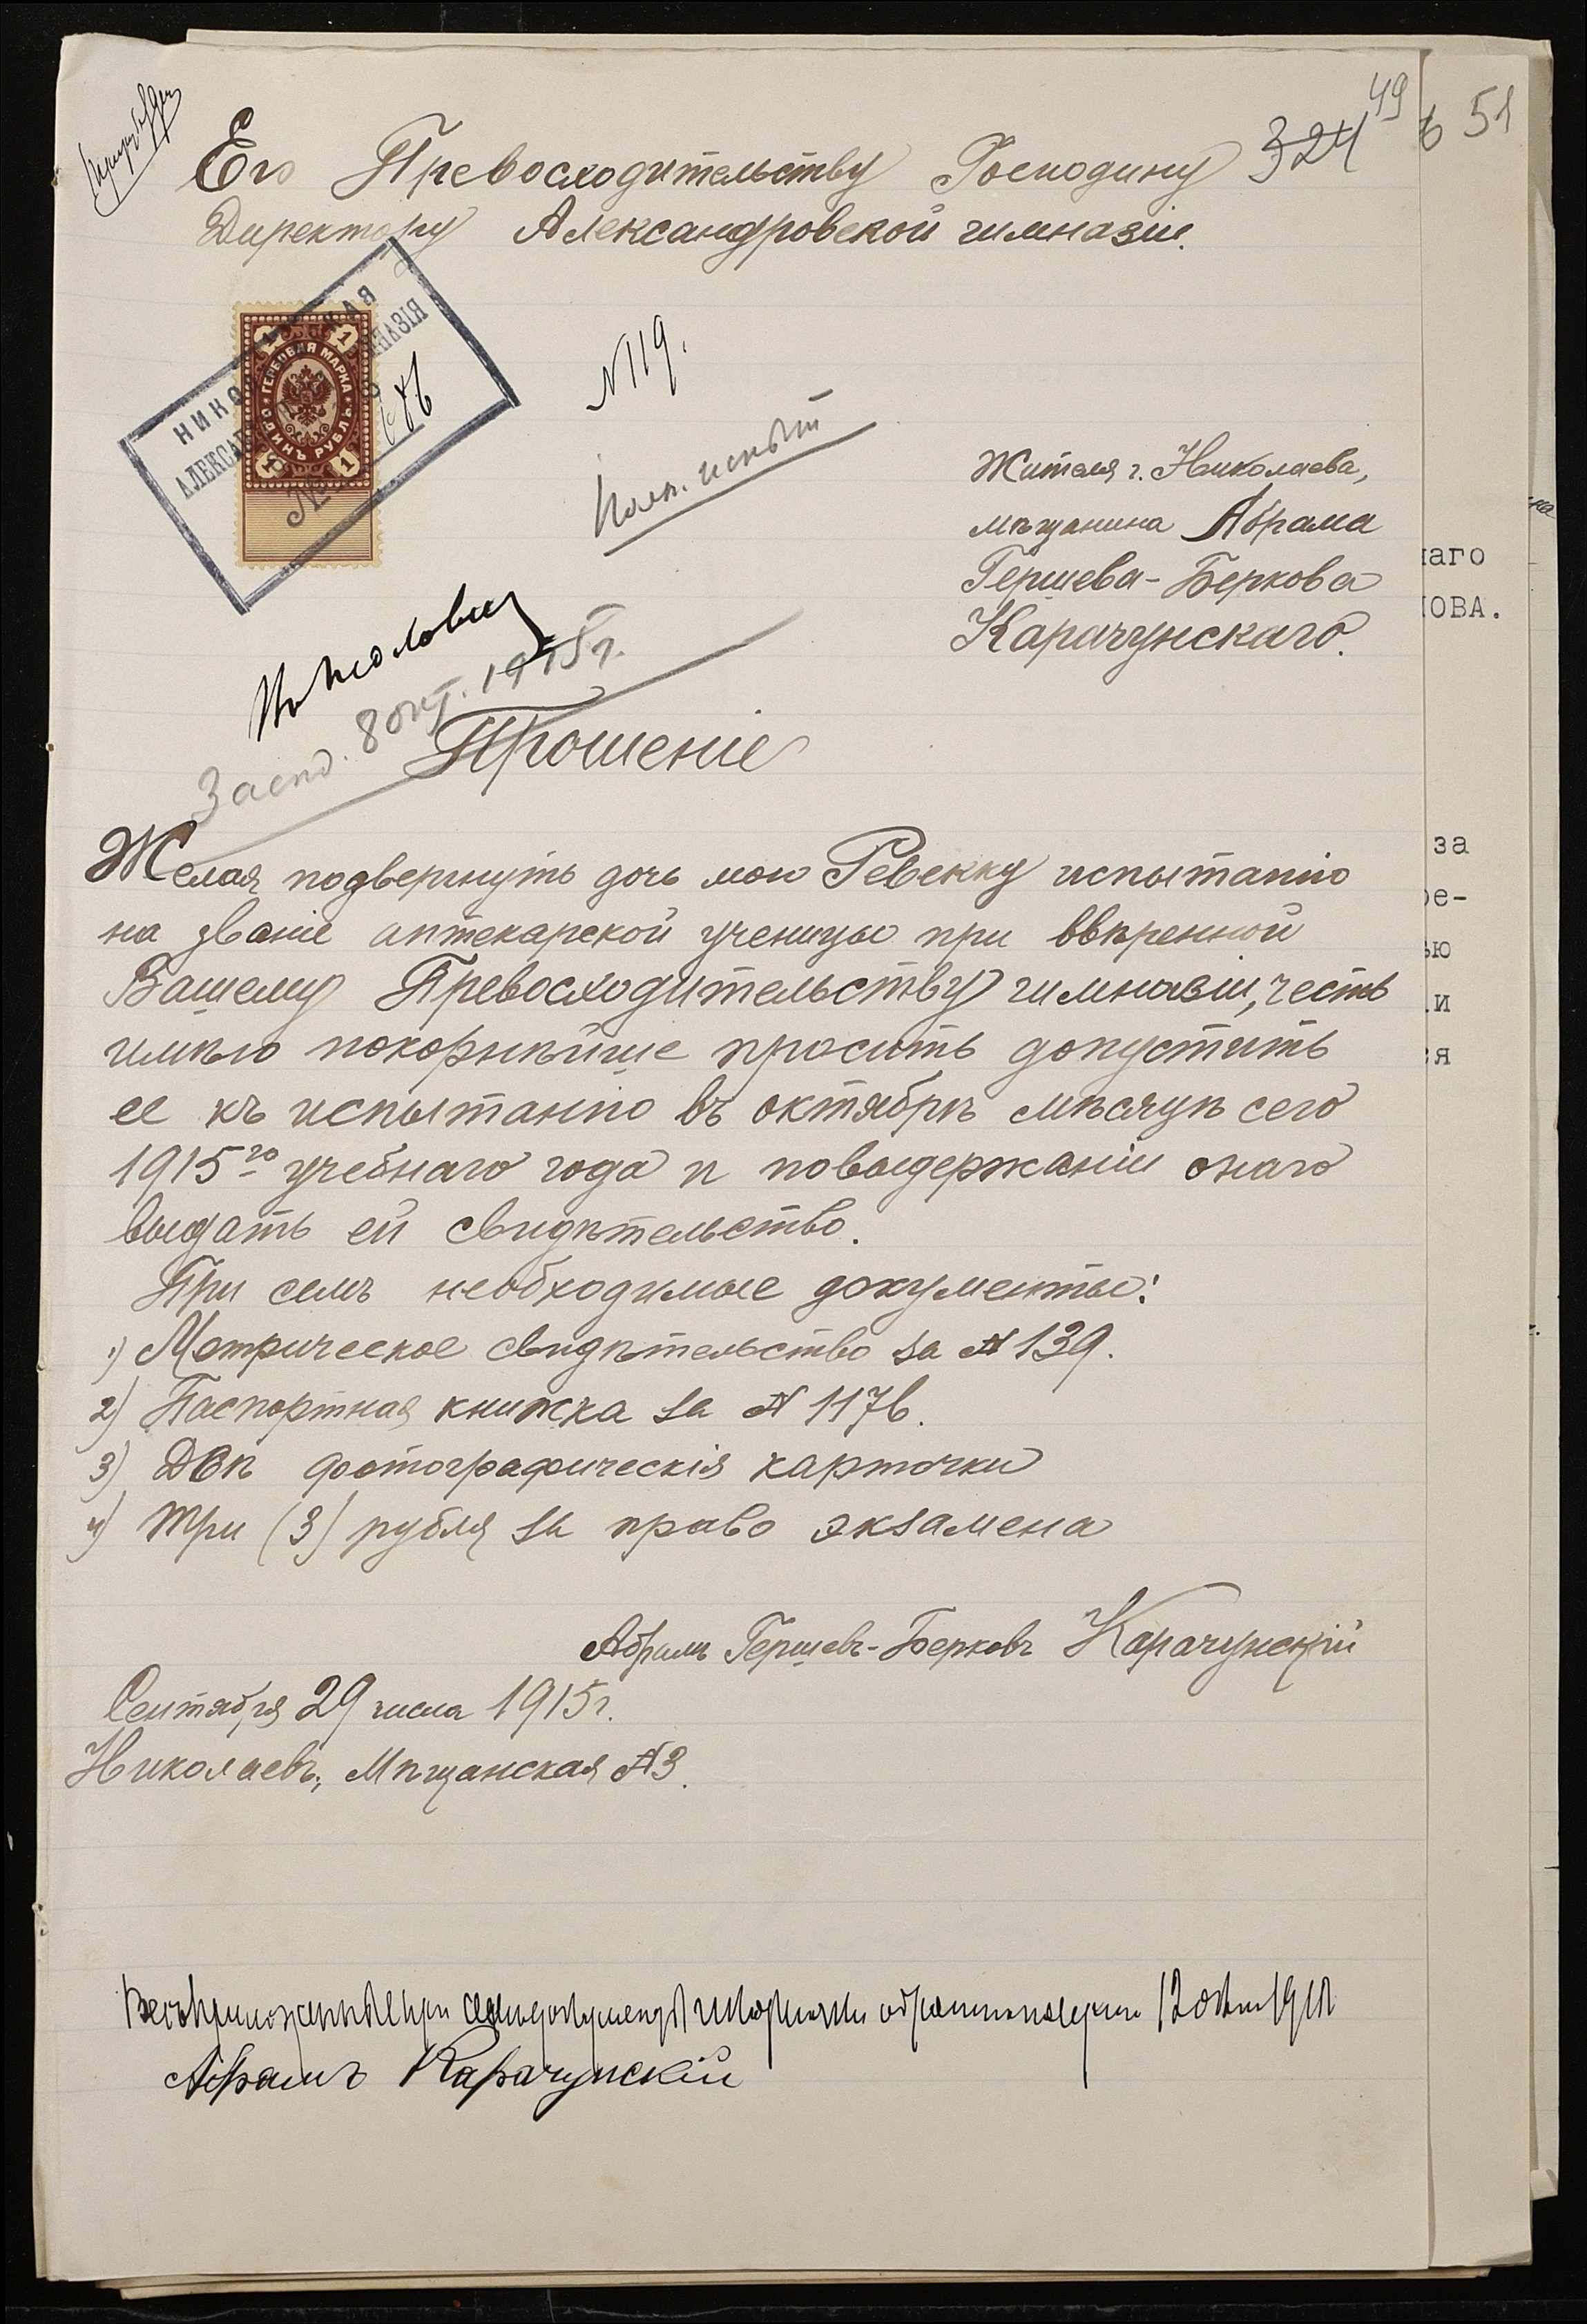 49
324
51
Его Превосходительству Господину
Директору Александровской гимназіи.
ГЕРБОВАЯ МАРКА
ОДИНЪ РУБЛЬ
1 1
1 1
№
№ 119.
Жителя г. Николаева,
мѣщанина Абрама
Гершева-Беркова
Карачунскаго.
8 окт. 1915 г.
Прошеніе
Желая подвергнуть дочь мою Ревекку испытанію
на званіе аптекарской ученицы при ввѣренной
Вашему Превосходительству гимназіи, честь
имѣю покорнѣйше просить допустить
ее къ испытанію въ октябрѣ мѣсяцѣ сего
1915го учебнаго года и по выдержаніи онаго
выдать ей свидѣтельство.
При семъ необходимые документы:
1) Метрическое свидѣтельство за № 139.
2) Паспортная книжка за № 1176.
3) Двѣ фотографическія карточки
4) Три (3) рубля за право экзамена
Абрамъ Гершевъ-Берковъ Карачунскій
Сентября 29 числа 1915 г.
Николаевъ, Мѣщанская № 3.
Абрамъ Карачунскій
наго
ОВА.
за
ре-
ью
и
я